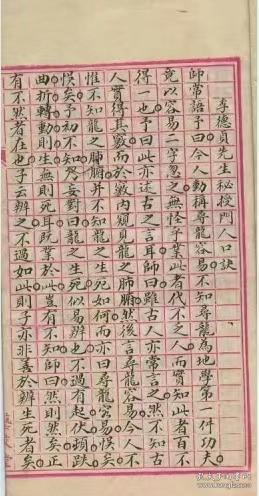 李德貞先生秘授門人口訣
師常語予曰今人動稱尋龍容易不知尋龍為地學第一件功夫
竟以容易二字忽之無怪乎業此者代不乏人而實知此者百不
得一也予曰此亦述古之言耳師曰雖古人亦常言之然不知古
人實得其數而於數內窺見龍之肺腑然後言尋龍容易今人不
惟不知龍之肺腑并不知龍之生死如何而曰尋龍容易悞
悞矣予初不知妄對曰龍之生死似易辨也不過有起伏頓跌
曲折轉動則生無則死耳既業於此豈有不知師曰然則矣正
有不然者在也子云辨之不過如此則子亦非善於辨生死者